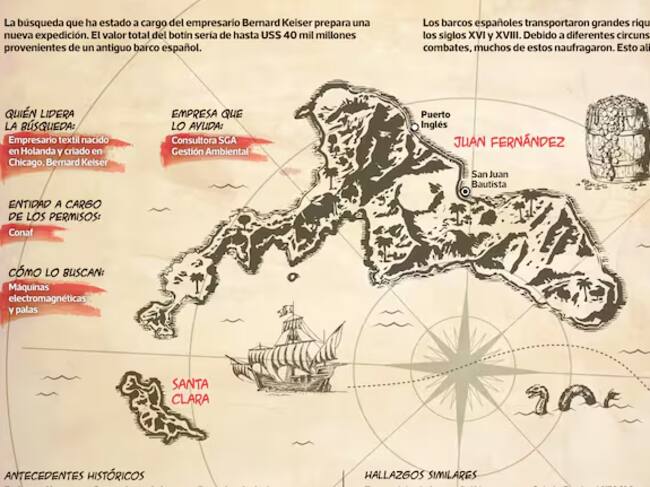 La búsqueda que ha estado a cargo del empresario Bernard Keiser prepara una
nueva expedición. El valor total del botín sería de hasta US$ 40 mil millones
provenientes de un antiguo barco español.
Los barcos españoles transportaron grandes
los siglos XVI y XVIII. Debido a diferentes
combates, muchos de estos naufragaron. Esto
QUIÉN LIDERA
LA BÚSQUEDA:
Empresario textil nacido
en Holanda y criado en
Chicago, Bernard Keiser
EMPRESA QUE
LO AYUDA:
Consultora SGA
Gestión Ambiental
ENTIDAD A CARGO
DE LOS PERMISOS:
Conaf
CÓMO LO BUSCAN:
Máquinas
electromagnéticas
y palas
Puerto
Inglés
JUAN FERNÁNDEZ
San Juan
Bautista
SANTA
CLARA
ANTECEDENTES HISTÓRICOS
HALLAZGOS SIMILARES